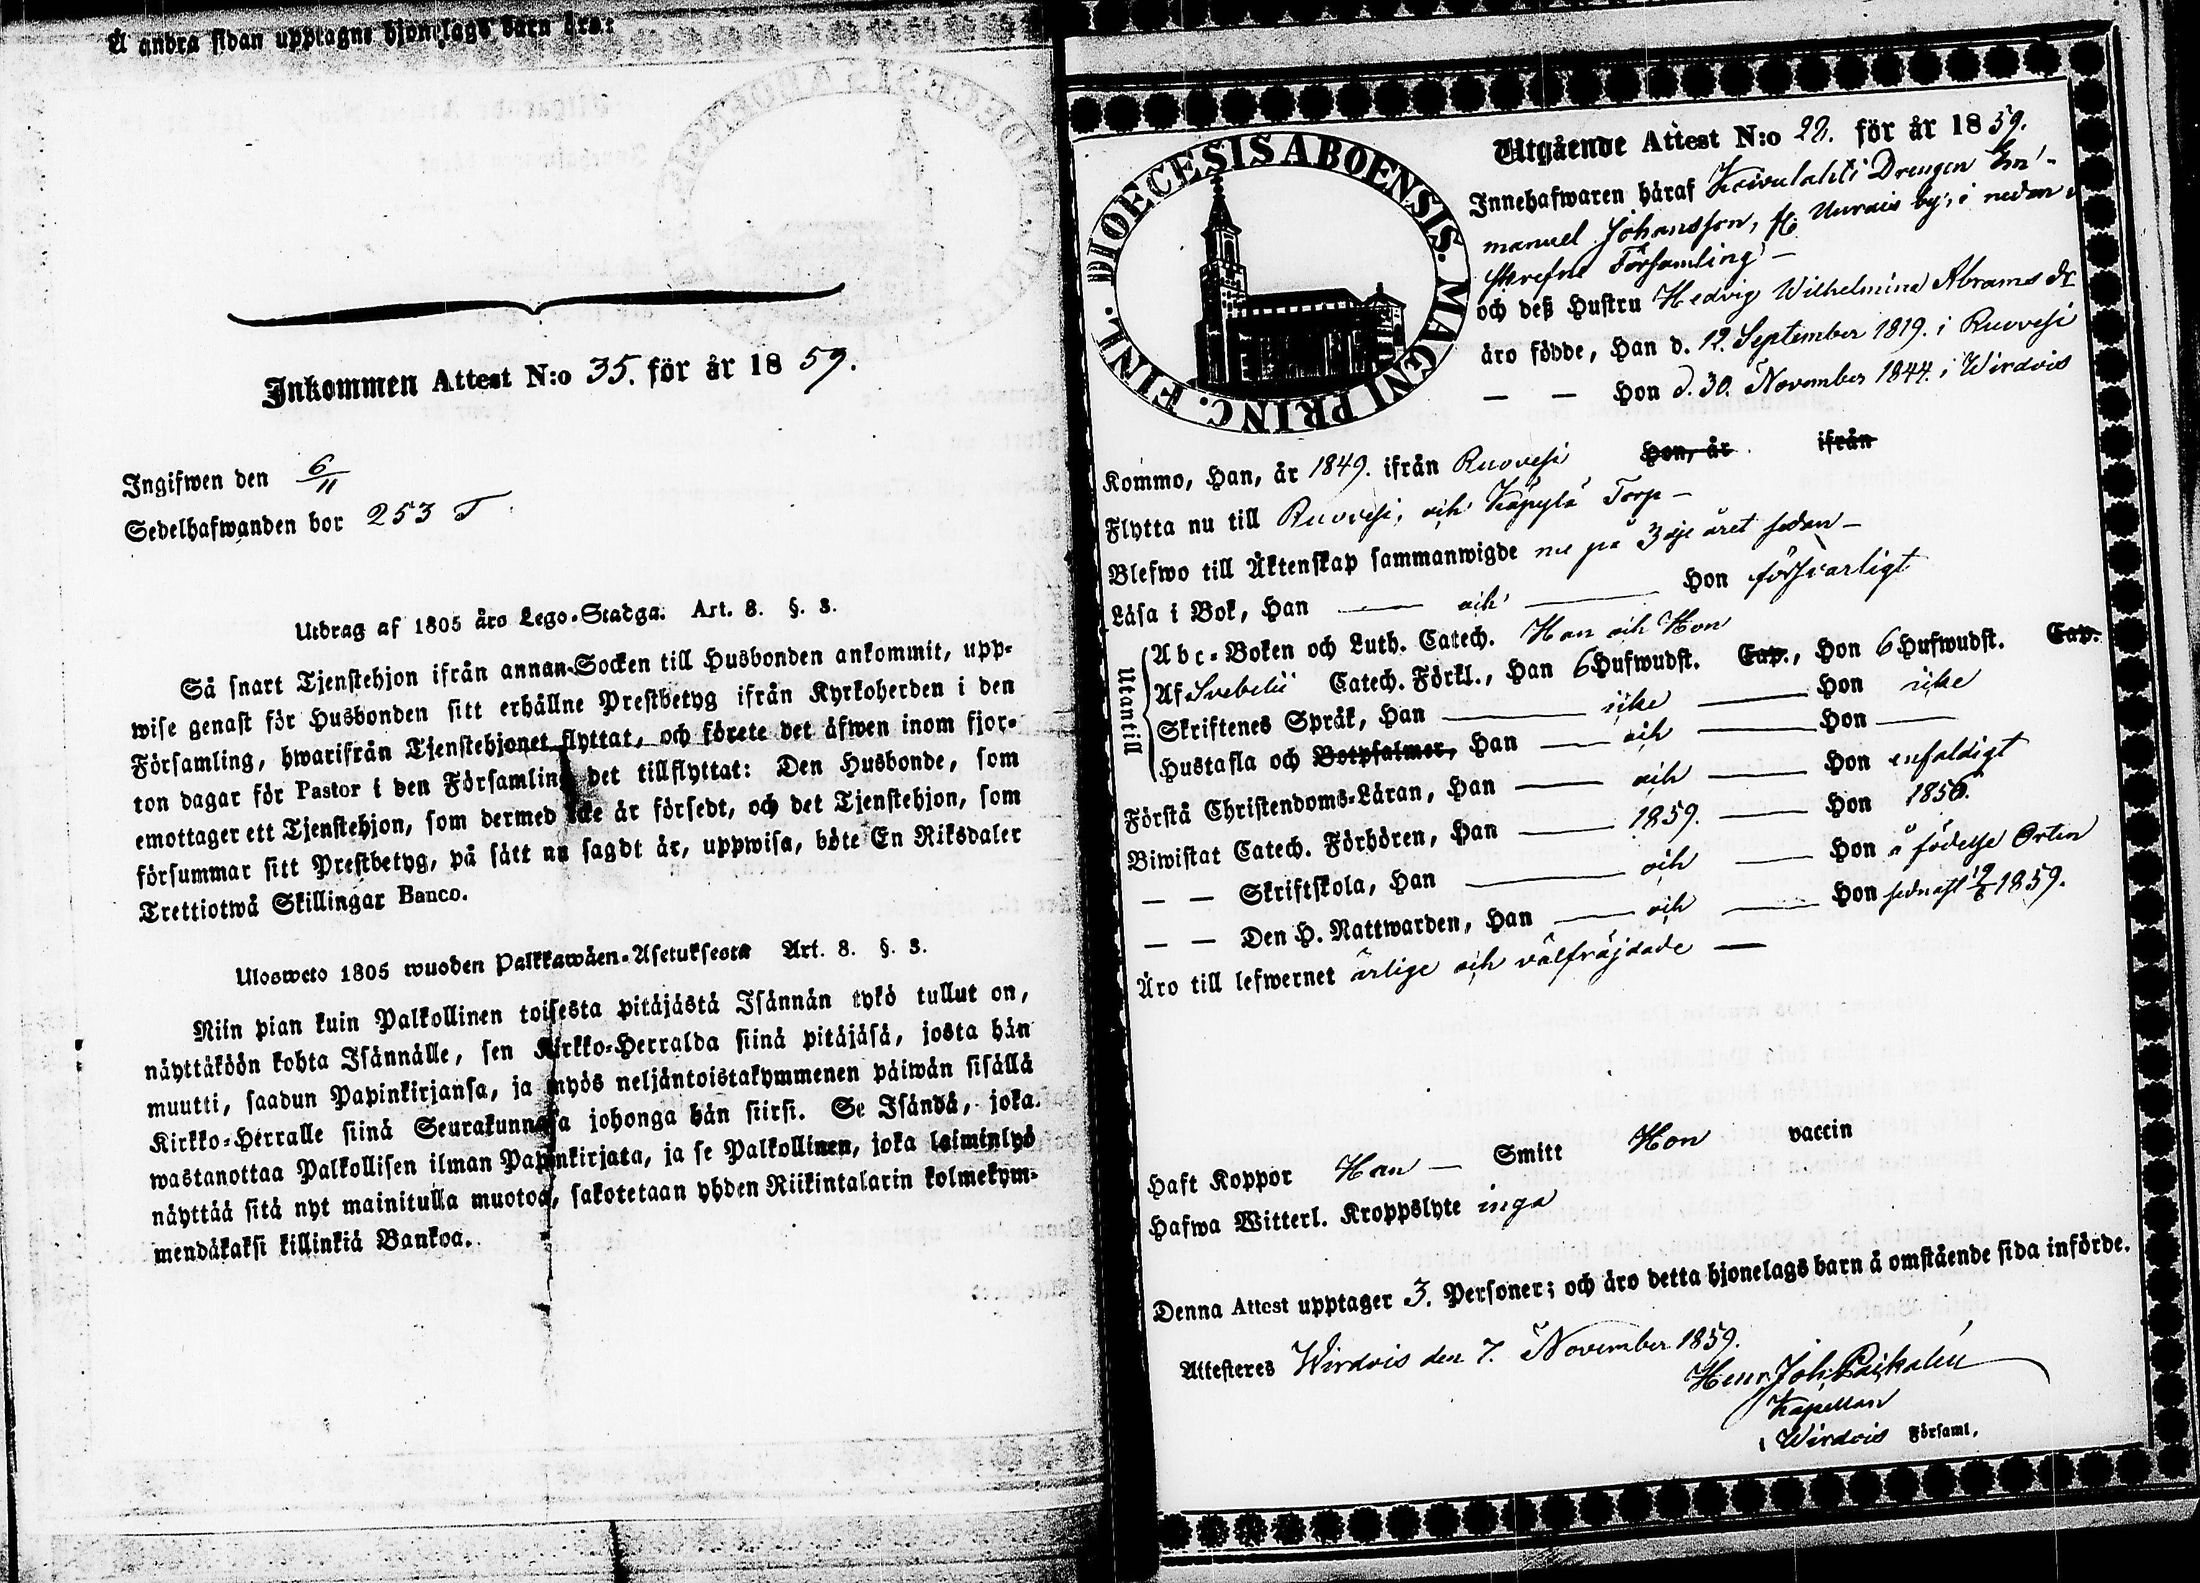 Å andra sidan upptagne hjonelags barn äro:
Inkommen Attest N:o 35. för år 1859.
Ingifwen den 6/11
Sedelhafwanden bor 253 T
Utdrag af 1805 års Lego-Stadga. Art. 8. §. 3.
Så snart Tjenstehjon ifrån annan Socken till Husbonden ankommit, upp-
wise genast för Husbonden sitt erhållne Prestbetyg ifrån Kyrkoherden i den
Församling, hwarifrån Tjenstehjonet flyttat, och förete det äfwen inom fjor-
ton dagar för Pastor i den Församling det tillflyttat: Den Husbonde, som
emottager ett Tjenstehjon, som dermed icke är försedt, och det Tjenstehjon, som
försummar sitt Prestbetyg, på sätt nu sagdt är, uppwisa, böte En Riksdaler
Trettiotwå Skillingar Banco.
Ulosweto 1805 wuoden Palkkawäen-Asetuksesta Art. 8. §. 3.
Niin pian kuin Palkollinen toisesta pitäjästä Isännän tykö tullut on,
näyttäköön kohta Isännälle, sen Kirkko-Herralda siinä pitäjäsä, josta hän
muutti, saadun Papinkirjansa, ja myös neljäntoistakymmenen päiwän sisällä
Kirkko-Herralle siinä Seurakunnasa johonga hän siirsi. Se Isändä, joka
wastanottaa Palkollisen ilman Papinkirjata, ja se Palkollinen, joka laiminlyö
näyttää sitä nyt mainitulla muotoa, sakotetaan yhden Riikintalarin kolmekym-
mendäkaksi killinkiä Bankoa.
DIOECESIS ABOENSIS. MAGNI PRINC. FINL.
Utgående Attest N:o 22. för år 1859.
Innehafwaren häraf Koivulahti Drengen Em-
manuel Johansson, fr. Uurais by, i nedan
skrefne Församling —
och deß Hustru Hedvig Wilhelmina Abrams dr
äro födde, Han d. 12. September 1819. i Ruovesi
— — Hon d. 30. November 1844. i Wirdois
Kommo, Han, år 1849. ifrån Ruovesi Hon, år ifrån
Flytta nu till Ruovesi, och Käpylä Torp —
Blefwo till Äktenskap sammanwigde nu på 3dje året sedan —
Läsa i Bok, Han — och — Hon försvarligt
Utantill
Abc-Boken och Luth. Catech. Han och Hon
Af Svebelii Catech. Förkl., Han 6 Hufwudst. Cap., Hon 6 Hufwudst. Cap.
Skriftenes Språk, Han — icke — Hon icke
Hustafla och Botpsalmer, Han — och — Hon —
Förstå Christendoms-Läran, Han — och — Hon enfaldigt
Biwistat Catech. Förhören, Han — 1859. — Hon 1856.
— — Skriftskola, Han — och — Hon å födelse Orten
— — Den H. Nattwarden, Han — och — Hon sednast 19/6 1859.
Äro till lefwernet ärlige och välfräjdade —
Haft Koppor Han — Smitt Hon vaccin
Hafwa Witterl. Kroppslyte inga
Denna Attest upptager 3. Personer; och äro detta hjonelags barn å omstående sida införde.
Attesteres Wirdois den 7. November 1859.
Henr. Joh.
Kapellan
i Wirdois Församl.